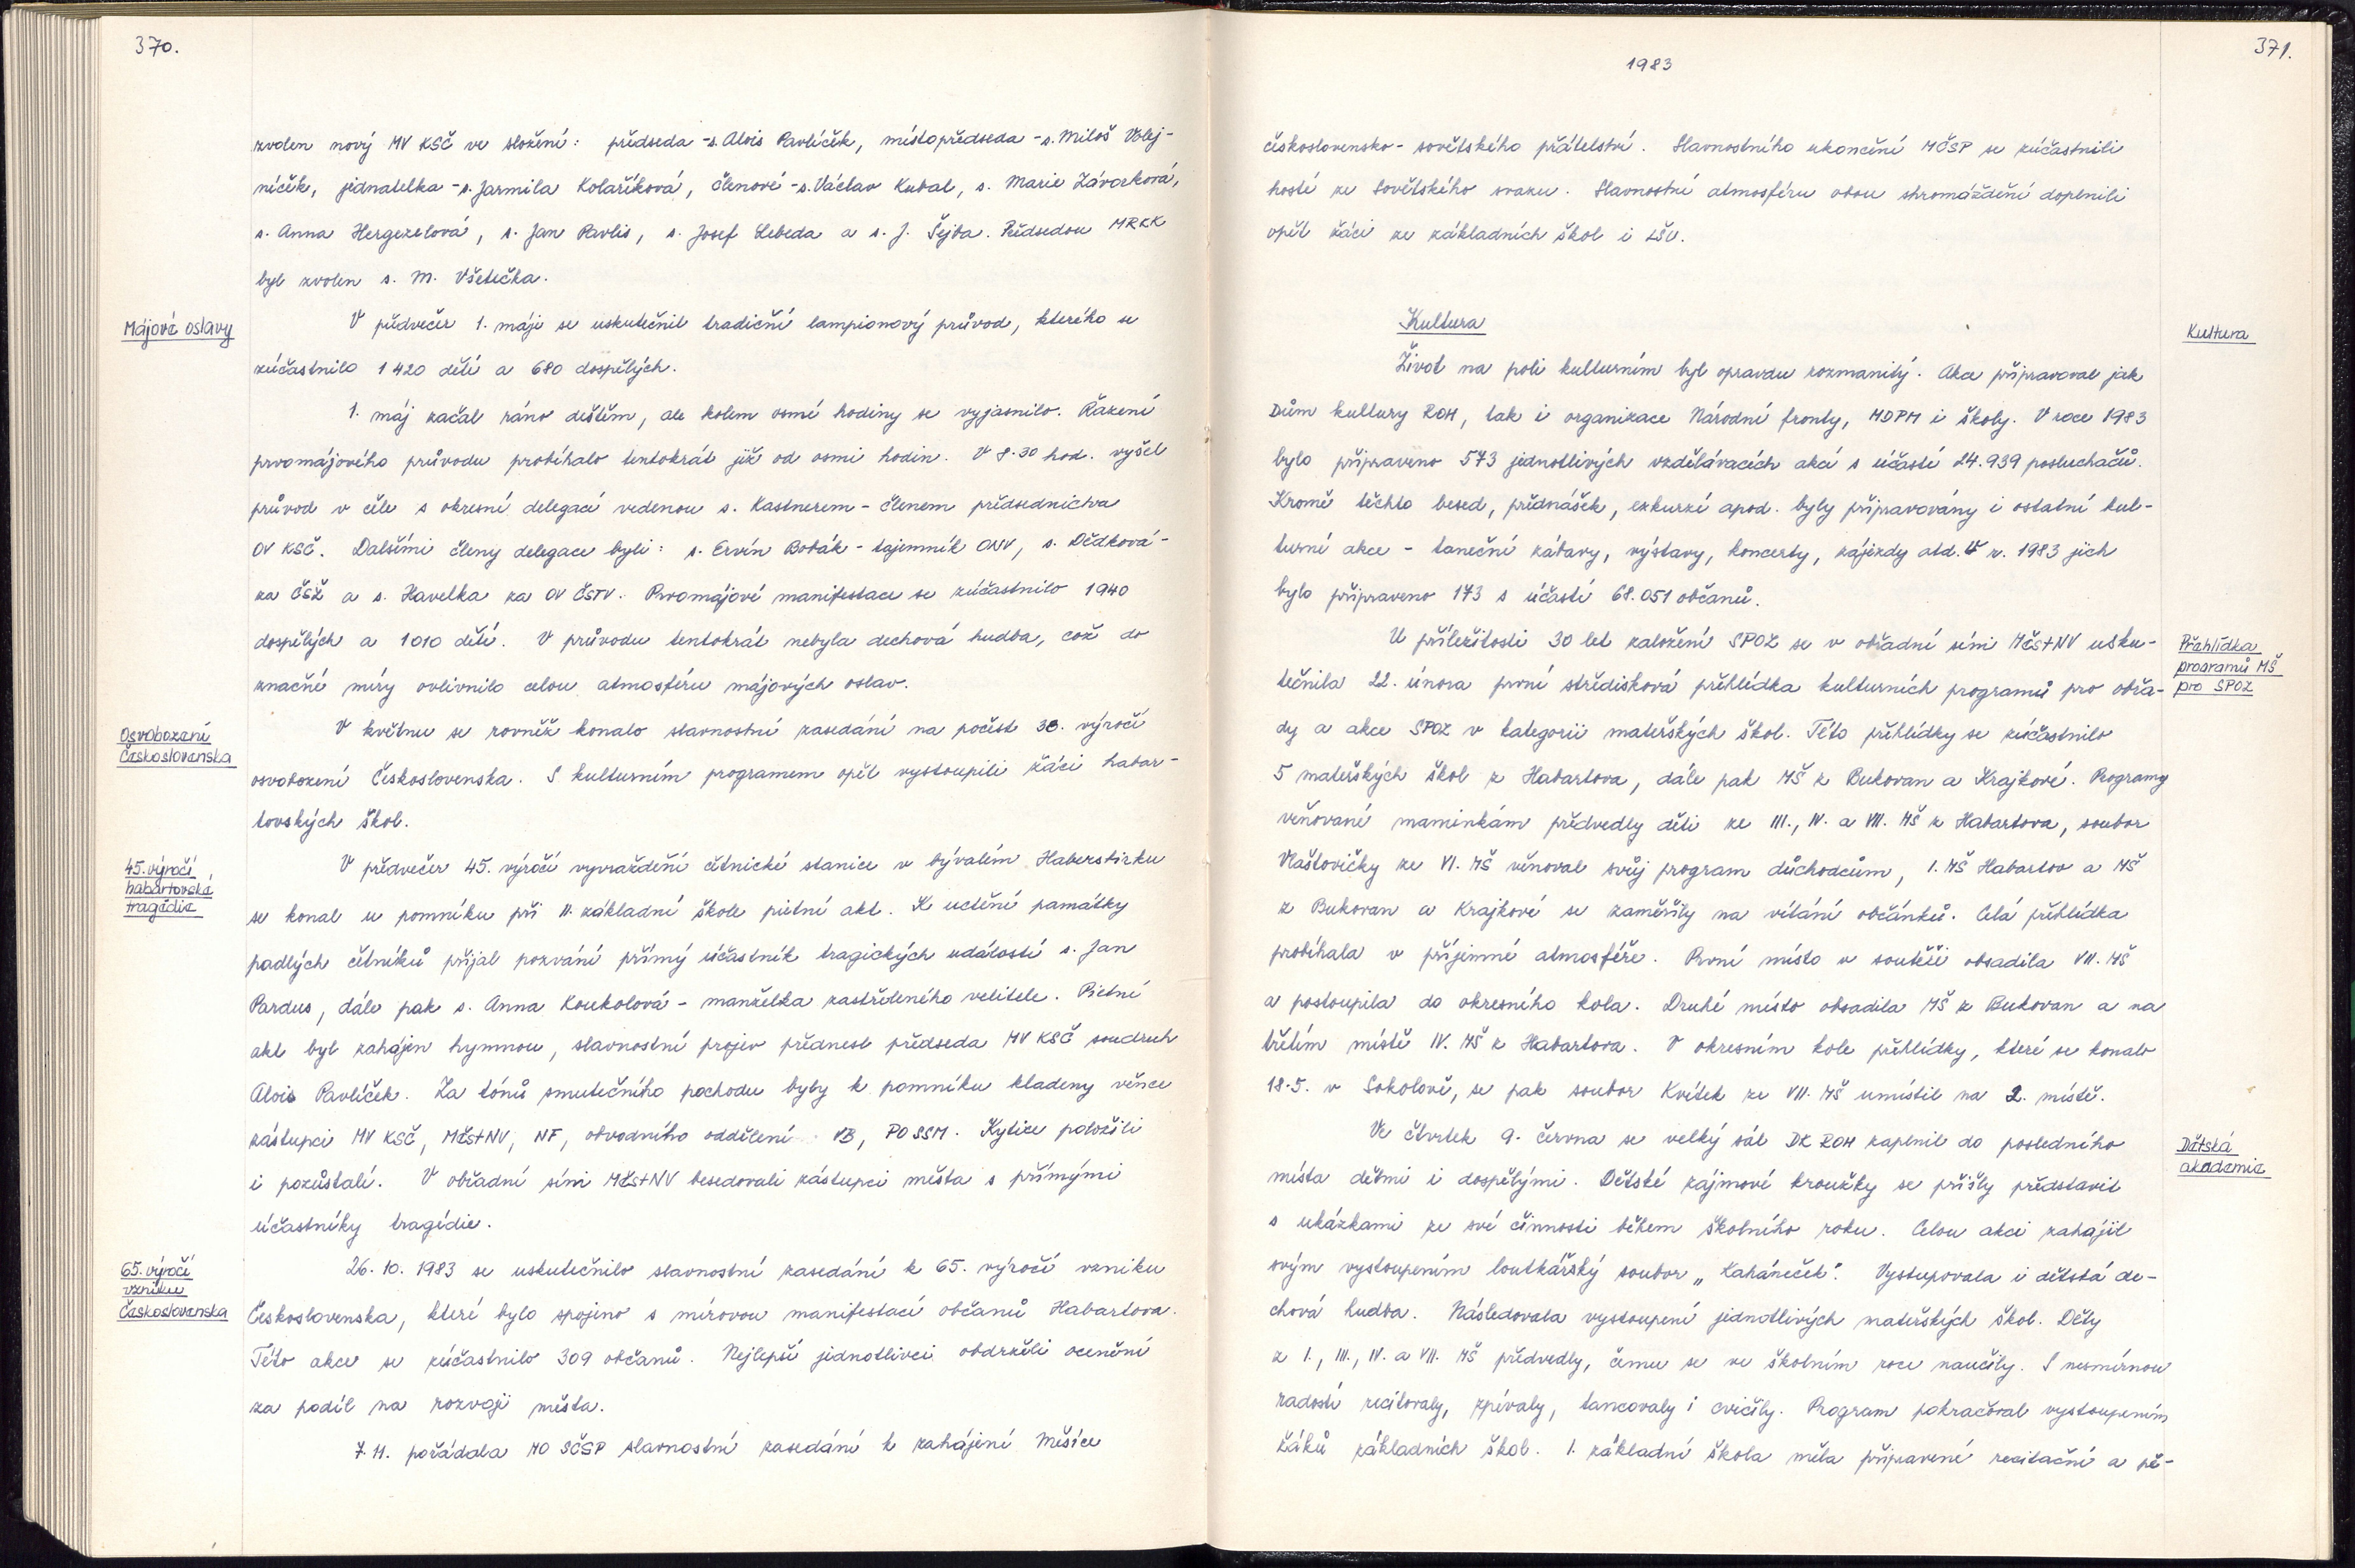 370.
zvolen nový MV KSČ ve složení: předseda - s. Alois Pavlíček, místopředseda - s. Miloš Volej-
níček, jednatelka - s. Jarmila Kolaříková, členové - s. Václav Kubal, s. Marie Závorková,
s. Anna Hergezelová, s. Jan Pavlis, s. Josef Lebeda a s. J. Šejba. Předsedou MRKK
byl zvolen s. M. Všetečka.
Májové oslavy
V předvečer 1. máje se uskutečnil tradiční lampionový průvod, kterého se
zúčastnilo 1 420 dětí a 680 dospělých.
1. máj začal ráno deštěm, ale kolem osmé hodiny se vyjasnilo. Řazení
prvomájového průvodu probíhalo tentokrát již od osmi hodin. V 8.30 hod. vyšel
průvod v čele s okresní delegací vedenou s. Kastnerem - členem předsednictva
OV KSČ. Dalšími členy delegace byli: s. Ervín Bobák - tajemník ONV, s. Dědková -
za ČSŽ a s. Havelka za OV ČSTV. Prvomájové manifestace se zúčastnilo 1940
dospělých a 1010 dětí. V průvodu tentokrát nebyla dechová hudba, což do
značné míry ovlivnilo celou atmosféru májových oslav.
Osvobození
Československa
V květnu se rovněž konalo slavnostní zasedání na počest 38. výročí
osvobození Československa. S kulturním programem opět vystoupili žáci habar-
tovských škol.
45. výročí
habartovské
tragédie
V předvečer 45. výročí vyvraždění četnické stanice v bývalém Haberstirku
se konal u pomníku při II. základní škole pietní akt. K uctění památky
padlých četníků přijal pozvání přímý účastník tragických událostí s. Jan
Pardus, dále pak s. Anna Koukolová - manželka zastřeleného velitele. Pietní
akt byl zahájen hymnou, slavnostní projev přednesl předseda MV KSČ soudruh
Alois Pavlíček. Za tónů smutečního pochodu byby k pomníku kladeny věnce
zástupci MV KSČ, MěstNV, NF, obvodního oddělení VB, PO SSM. Kytice položili
i pozůstalí. V obřadní síni MěstNV besedovali zástupci města s přímými
účastníky tragédie.
65. výročí
vzniku
Československa
26. 10. 1983 se uskutečnilo slavnostní zasedání k 65. výročí vzniku
Československa, které bylo spojeno s mírovou manifestací občanů Habartova.
Této akce se zúčastnilo 309 občanů. Nejlepší jednotlivci obdrželi ocenění
za podíl na rozvoji města.
7. 11. pořádala MO SČSP slavnostní zasedání k zahájení Měsíce
371.
1983
československo - sovětského přátelství. Slavnostního ukončení MČSP se zúčastnili
hosté ze Sovětského svazu. Slavnostní atmosféru obou shromáždění doplnili
opět žáci ze základních škol i LŠU.
Kultura
Kultura
Život na poli kulturním byl opravdu rozmanitý. Akce připravoval jak
Dům kultury ROH, tak i organizace Národní fronty, MDPM i školy. V roce 1983
bylo připraveno 573 jednotlivých vzdělávacích akcí s účastí 24.939 posluchačů.
Kromě těchto besed, přednášek, exkurzí apod. byly připravovány i ostatní kul-
turní akce - taneční zábavy, výstavy, koncerty, zájezdy atd. V r. 1983 jich
bylo připraveno 173 s účastí 68.051 občanů.
Přehlídka
programů MŠ
pro SPOZ
U příležitosti 30 let založení SPOZ se v obřadní síni MěstNV usku-
tečnila 22. února první středisková přehlídka kulturních programů pro obřa-
dy a akce SPOZ v kategorii mateřských škol. Této přehlídky se zúčastnilo
5 mateřských škol z Habartova, dále pak MŠ z Bukovan a Krajkové. Programy
věnované maminkám předvedly děti ze III., IV. a VII. MŠ z Habartova, soubor
Vlaštovičky ze VI. MŠ věnoval svůj program důchodcům, I. MŠ Habartov a MŠ
z Bukovan a Krajkové se zaměřily na vítání občánků. Celá přehlídka
probíhala v příjemné atmosféře. První místo v soutěži obsadila VII. MŠ
a postoupila do okresního kola. Druhé místo obsadila MŠ z Bukovan a na
třetím místě IV. MŠ z Habartova. V okresním kole přehlídky, které se konalo
18.5. v Sokolově, se pak soubor Kvítek ze VII. MŠ umístil na 2. místě.
Dětská
akademie
Ve čtvrtek 9. června se velký sál DK ROH zaplnil do posledního
místa dětmi i dospělými. Dětské zájmové kroužky se přišly představit
s ukázkami ze své činnosti během školního roku. Celou akci zahájil
svým vystoupením loutkářský soubor „Kaháneček". Vystupovala i dětská de-
chová hudba. Následovala vystoupení jednotlivých mateřských škol. Děty
z I., III., IV. a VII. MŠ předvedly, čemu se ve školním roce naučily. S nesmírnou
radostí recitovaly, zpívaly, tancovaly i cvičily. Program pokračoval vystoupením
žáků základních škol. I. základní škola měla připravené recitační a pě-